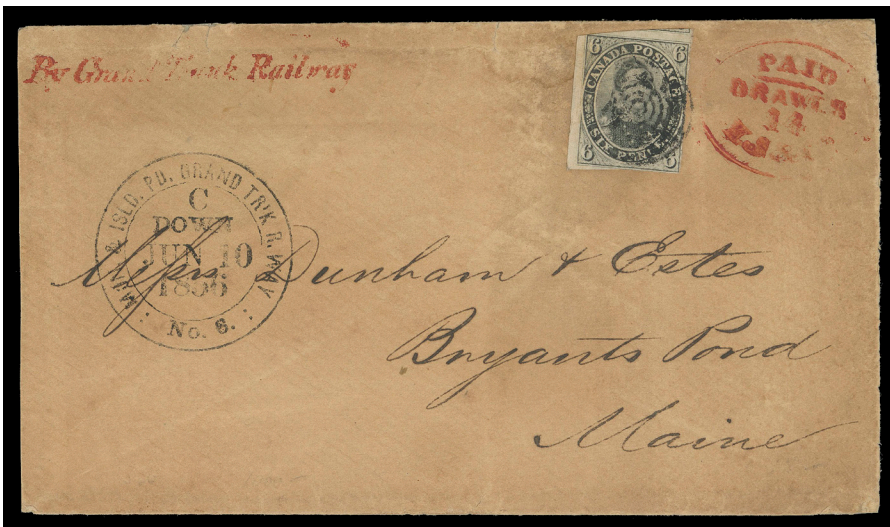 By Grand Trunk Railway
6 6
CANADA POSTAGE
SIX PENCE
6 6
PAID
DRAWER
14
MTL. & ISLD. PD. GRAND TR'K R. WAY
C
DOWN
JUN 10
1856
No. 8.
Messrs. Dunham & Estes
Bryants Pond
Maine